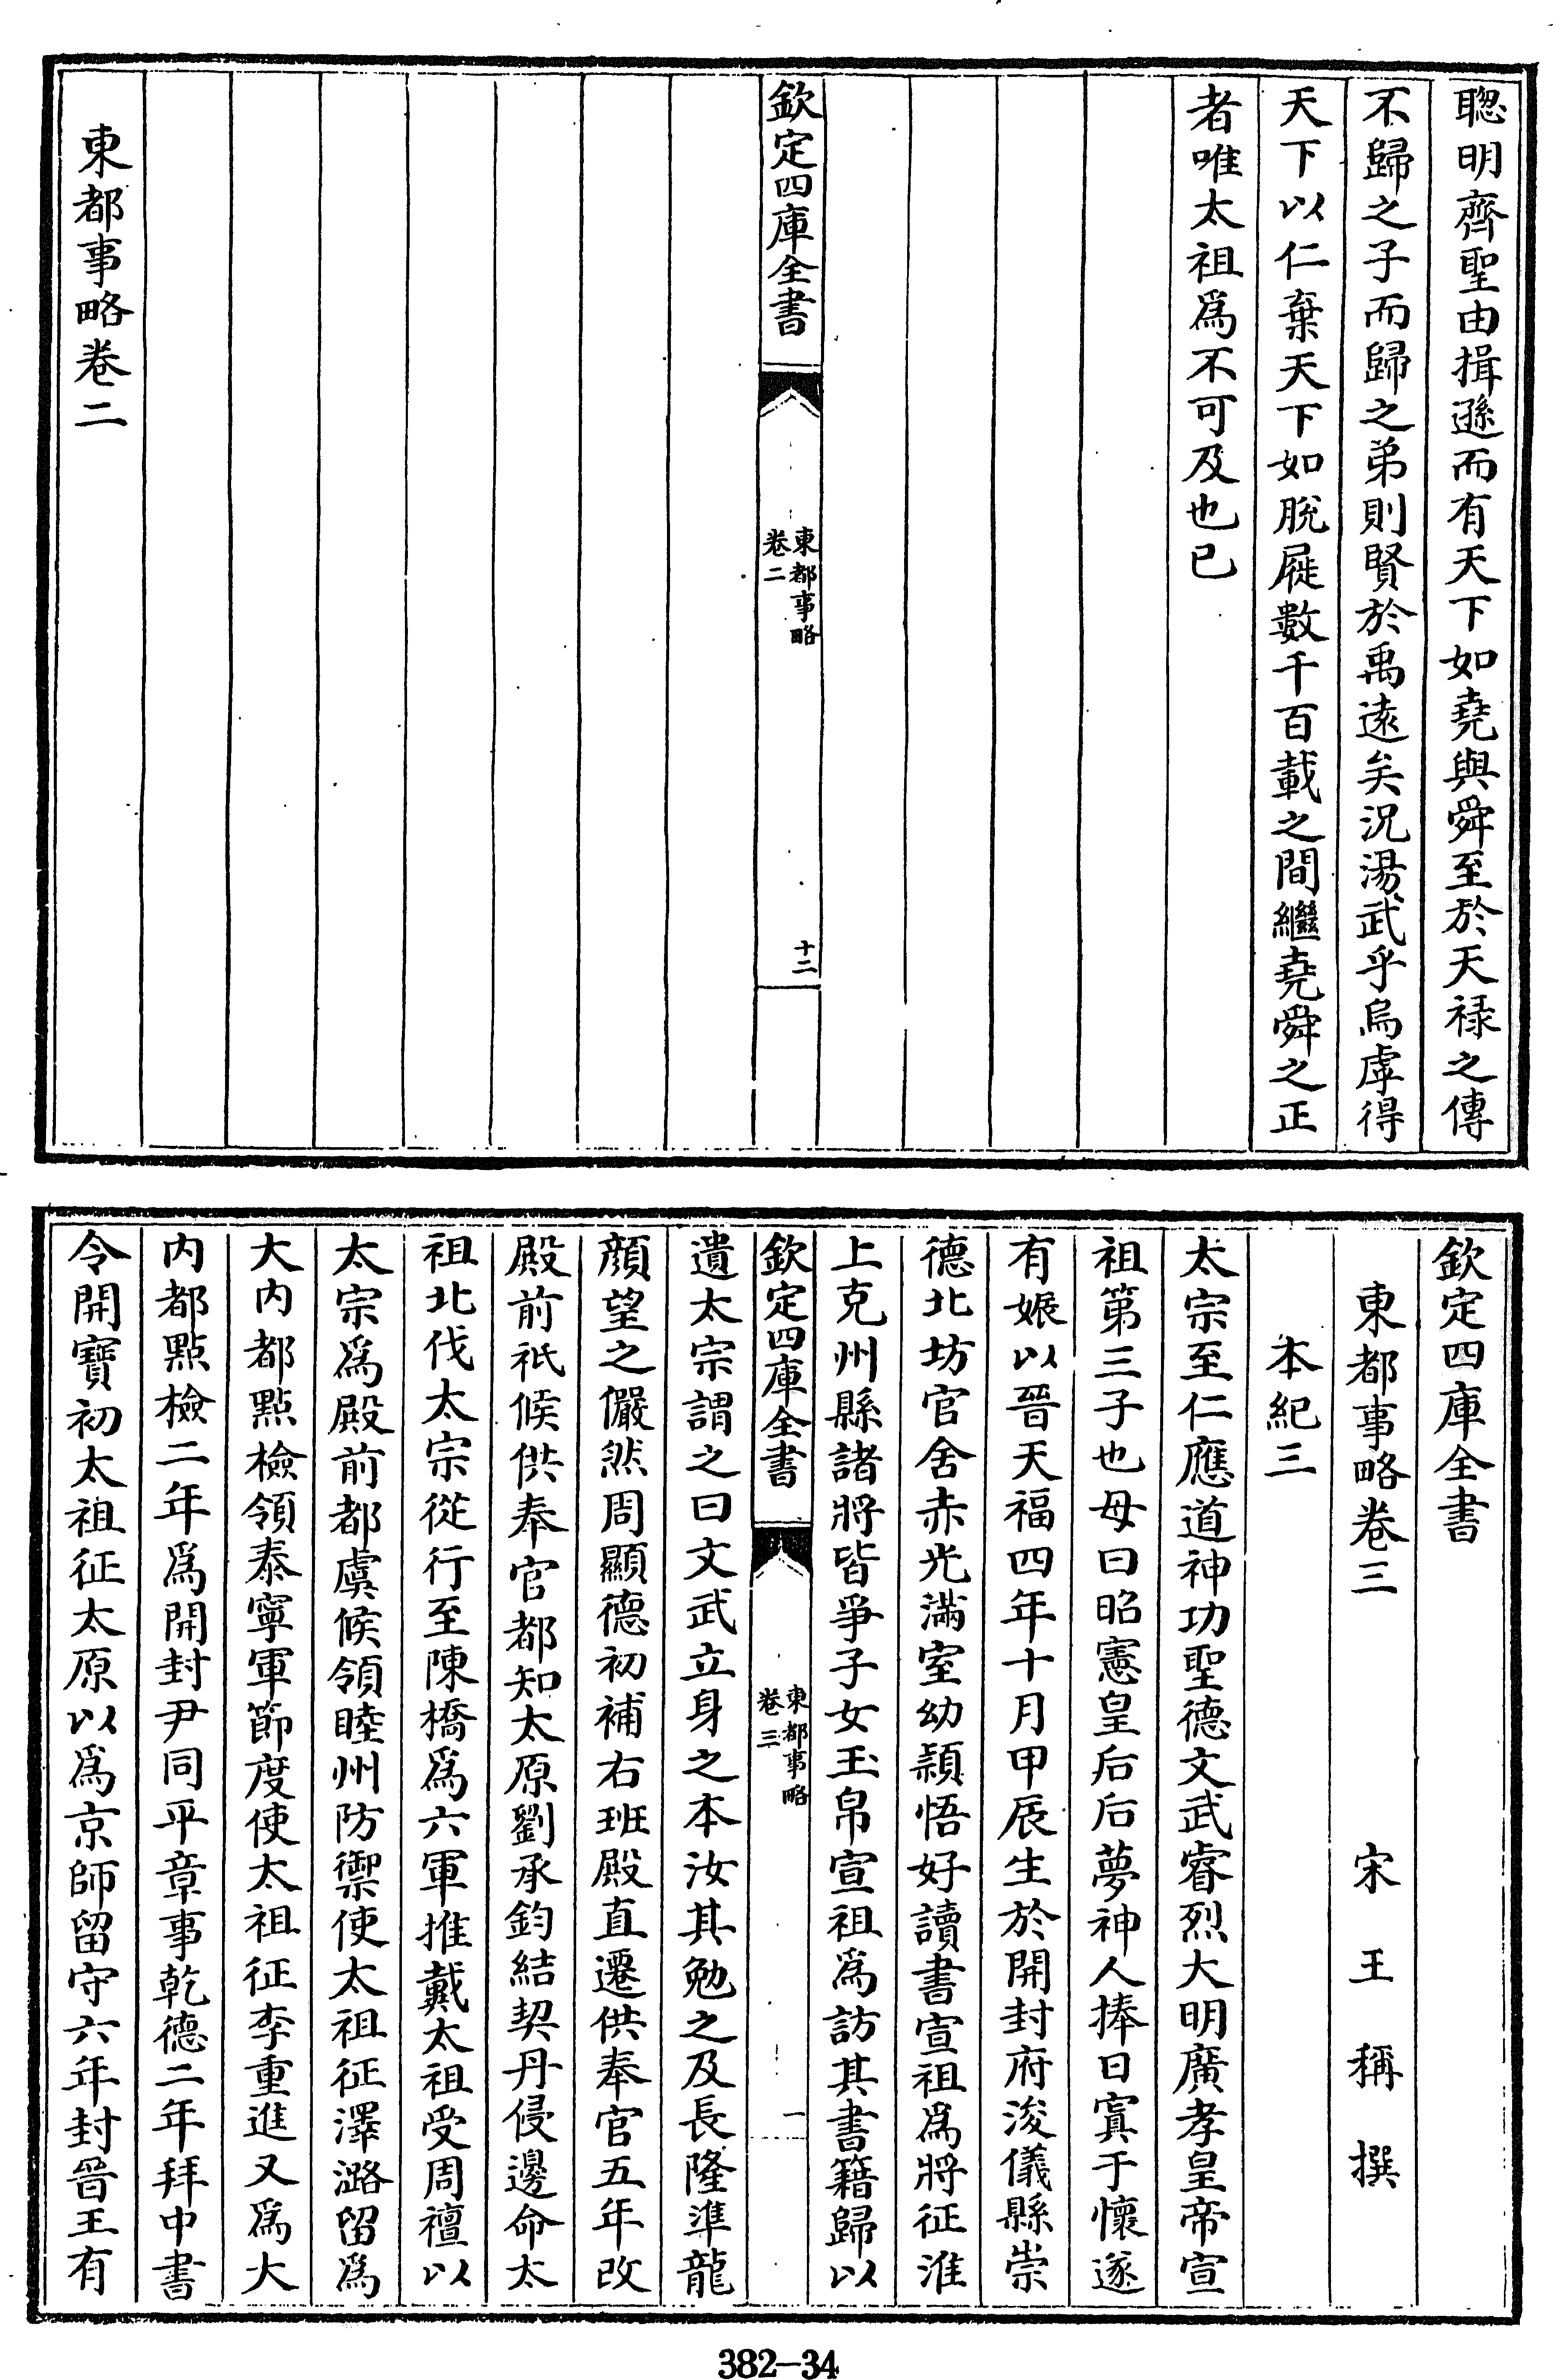 聰明齊聖由揖遜而有天下如堯與舜至於天禄之傳
不歸之子而歸之弟則賢於禹逺矣況湯武乎烏虖得
天下以仁棄天下如脫屣數千百載之間繼堯舜之正
者唯太祖爲不可及也已
欽定四庫全書
東都事略
卷二
十二
東都事略卷二
欽定四庫全書
東都事略卷三
宋王稱撰
本紀三
太宗至仁應道神功聖德文武睿烈大明廣孝皇帝宣
祖第三子也母曰昭憲皇后后夢神人捧日寘于懷遂
有娠以晉天福四年十月甲辰生於開封府浚儀縣崇
德北坊官舍赤光滿室幼穎悟好讀書宣祖爲將征淮
上克州縣諸將皆爭子女玉帛宣祖爲訪其書籍歸以
欽定四庫全書
東都事略
卷三
一
遺太宗謂之曰文武立身之本汝其勉之及長隆準龍
顔望之儼然周顯德初補右班殿直遷供奉官五年改
殿前祇候供奉官都知太原劉承鈞結契丹侵邊命太
祖北伐太宗從行至陳橋爲六軍推戴太祖受周禪以
太宗爲殿前都虞候領睦州防禦使太祖征澤潞留爲
大内都點檢領泰寧軍節度使太祖征李重進又爲大
内都點檢二年爲開封尹同平章事乾德二年拜中書
令開寶初太祖征太原以爲京師留守六年封晉王有
382-34